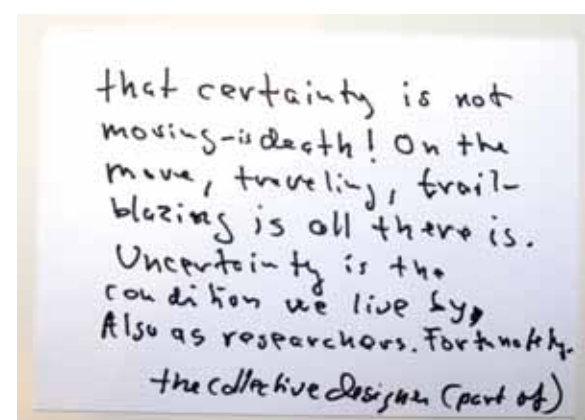 that certainty is not
moving-is death! On the
move, traveling, trail-
blazing is all there is.
Uncertainty is the
condition we live by,
Also as researchers. Fortunately.
the collective designer (part of)